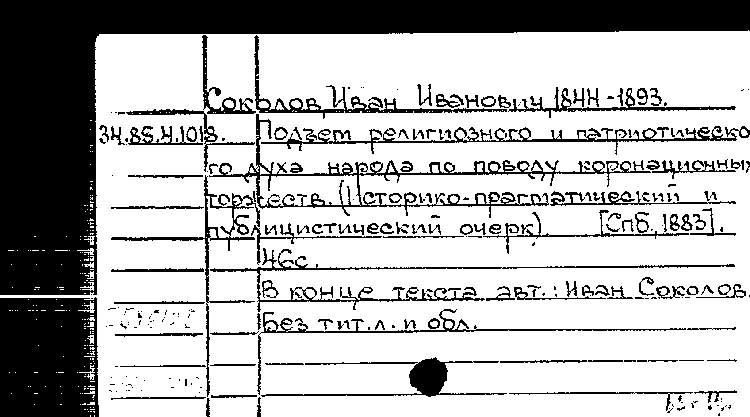 Соколов, Иван Иванович, 1844-1893.
34.85.4.1013. Подъем религиозного и патриотическо
го духа народа по поводу коронационных
торжеств. (Историко-прагматический и
публицистический очерк) [Спб, 1883].
46с.
В конце текста авт.: Иван Соколов.
Без тит.л. и обл.